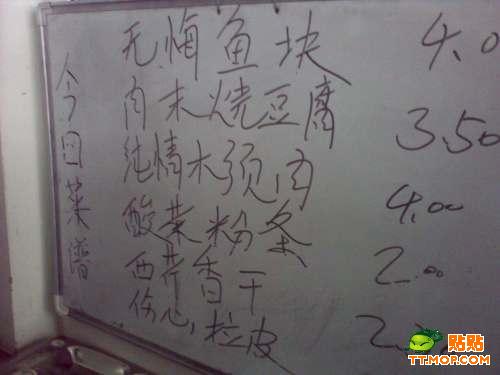 今日菜谱
无悔鱼块 4.0
肉末烧豆腐 3.50
纯情木须肉 4.00
酸菜粉条 2.00
西芹香干
伤心拉皮
贴贴
TT.MOP.COM